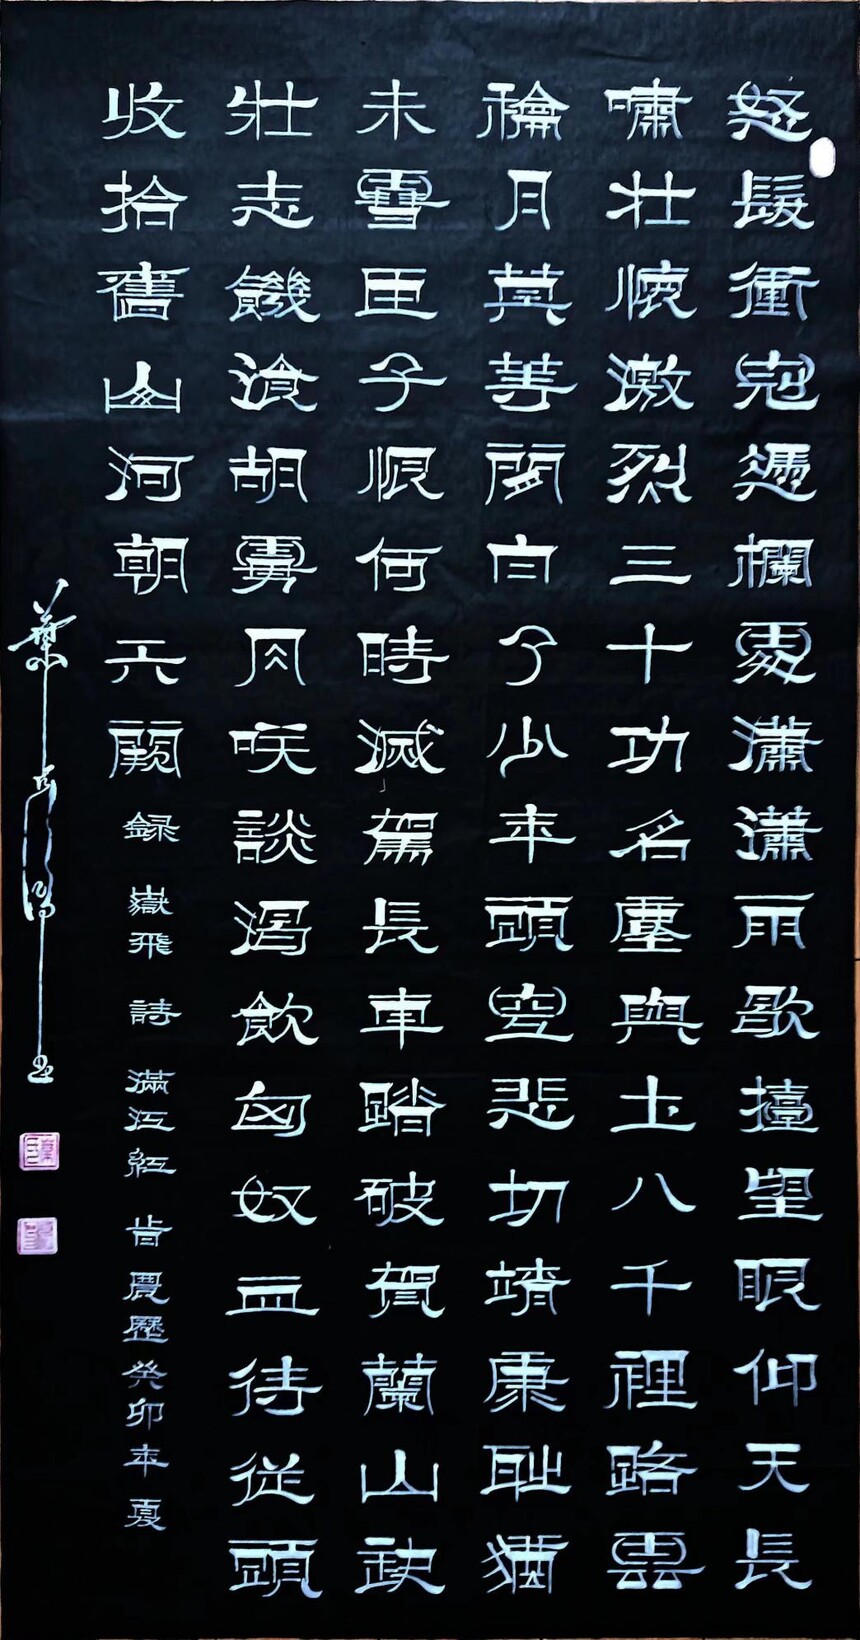 怒髮衝冠憑欄處瀟瀟雨歇擡望眼仰天長
嘯壯懷激烈三十功名塵與土八千裡路雲
龢月莫等閒白了少年頭空悲切靖康耻猶
未雪臣子恨何時滅駕長車踏破賀蘭山缺
壯志饑湌胡虜肉咲談渴飲匈奴血待從頭
收拾舊山河朝天闕 錄 嶽飛 詩 滿江紅 旹 農歷癸卯年夏
葉